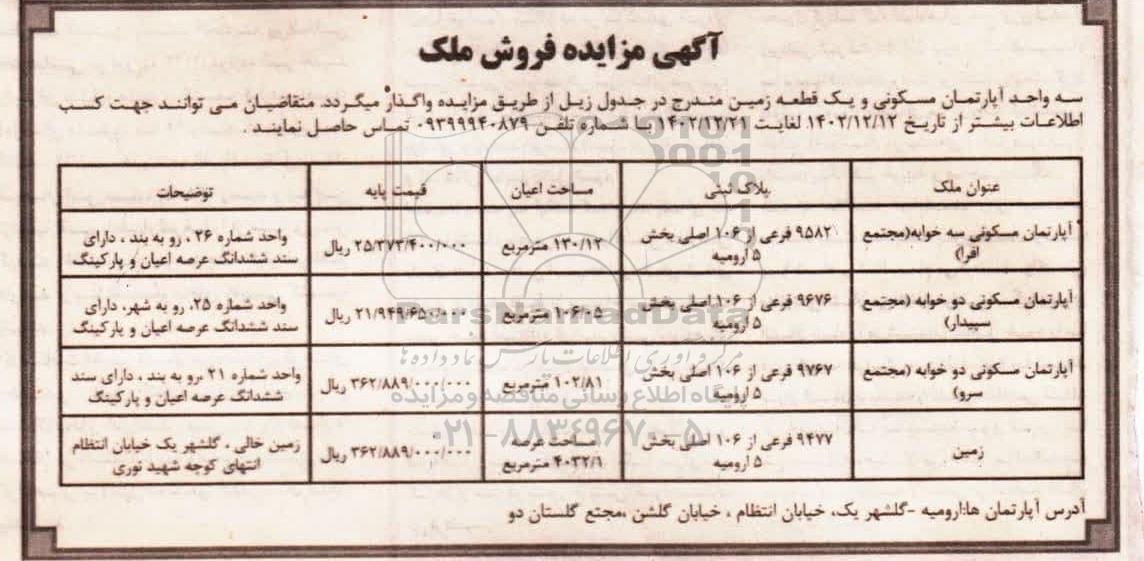 آگهی مزایده فروش ملک
سه واحد آپارتمان مسکونی و یک قطعه زمین مندرج در جدول زیل از طریق مزایده واگذار میگردد. متقاضیان می توانند جهت کسب
اطلاعات بیشتر از تاریخ ۱۴۰۲/۱۲/۱۲ لغایت ۱۴۰۲/۱۲/۲۱ با شماره تلفن ۰۹۳۹۹۹۴۰۸۷۹ تماس حاصل نمایند.
عنوان ملک پلاک ثبتی مساحت اعیان قیمت پایه توضیحات
آپارتمان مسکونی سه خوابه(مجتمع افرا) ۹۵۸۲ فرعی از ۱۰۶ اصلی بخش ۵ ارومیه ۱۳۰/۱۲ مترمربع ۲۵/۳۷۳/۴۰۰/۰۰۰ ریال واحد شماره ۲۶ ، رو به بند ، دارای سند ششدانگ عرصه اعیان و پارکینگ
آپارتمان مسکونی دو خوابه (مجتمع سپیدار) ۹۶۷۶ فرعی از ۱۰۶ اصلی بخش ۵ ارومیه ۱۰۶/۰۵ مترمربع ۲۱/۹۴۹/۶۵۰/۰۰۰ ریال واحد شماره ۲۵، رو به شهر، دارای سند ششدانگ عرصه اعیان و پارکینگ
آپارتمان مسکونی دو خوابه (مجتمع سرو) ۹۷۶۷ فرعی از ۱۰۶ اصلی بخش ۵ ارومیه ۱۰۲/۸۱ مترمربع ۳۶۲/۸۸۹/۰۰۰/۰۰۰ ریال واحد شماره ۲۱ ،رو به بند ، دارای سند ششدانگ عرصه اعیان و پارکینگ
زمین ۹۴۷۷ فرعی از ۱۰۶ اصلی بخش ۵ ارومیه مساحت عرصه ۴۰۳۲/۱ مترمربع ۳۶۲/۸۸۹/۰۰۰/۰۰۰ ریال زمین خالی ، گلشهر یک خیابان انتظام انتهای کوچه شهید نوری
آدرس آپارتمان ها:ارومیه -گلشهر یک، خیابان انتظام ، خیابان گلشن ،مجتع گلستان دو
ParsNamadData
مرکز فرآوری اطلاعات پارس نماد داده ها
پایگاه اطلاع رسانی مناقصه و مزایده
۰۲۱-۸۸۳۴۹۶۷۰-۵